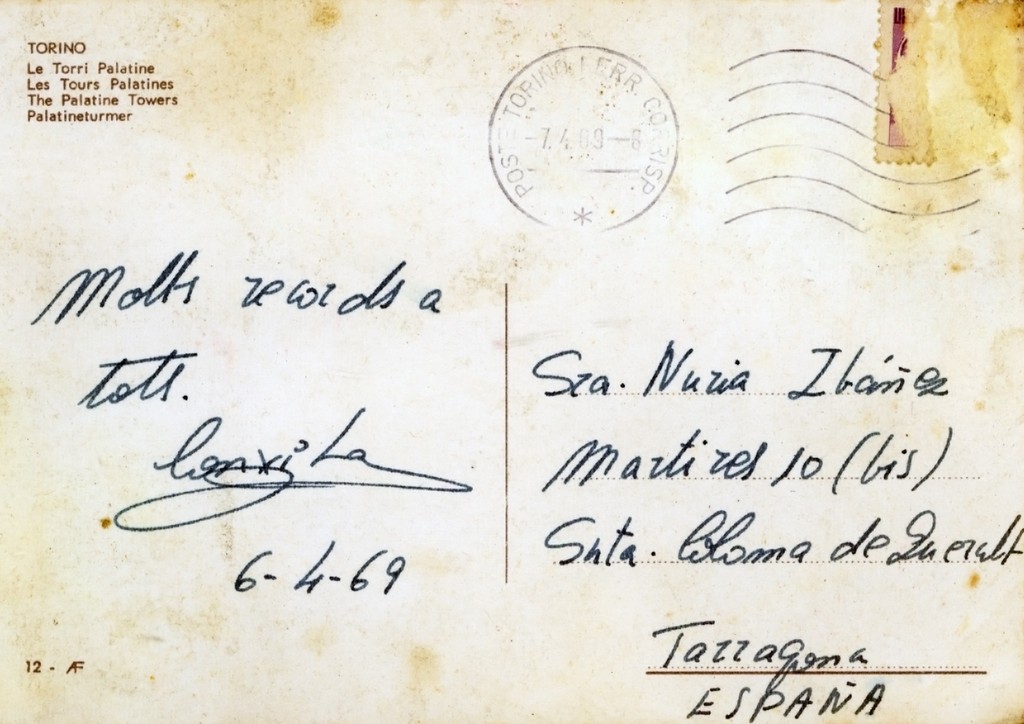 TORINO
Le Torri Palatine
Les Tours Palatines
The Palatine Towers
Palatineturmer
POSTE TORINO FERR. CORRISP.
-7.4.69-8
*
Molts records a
tots.
Conxita
6-4-69
Sra. Nuria Ibáñez
Martires 10 (bis)
Snta. Coloma de Queralt
Tarragona
ESPAÑA
12 - AF